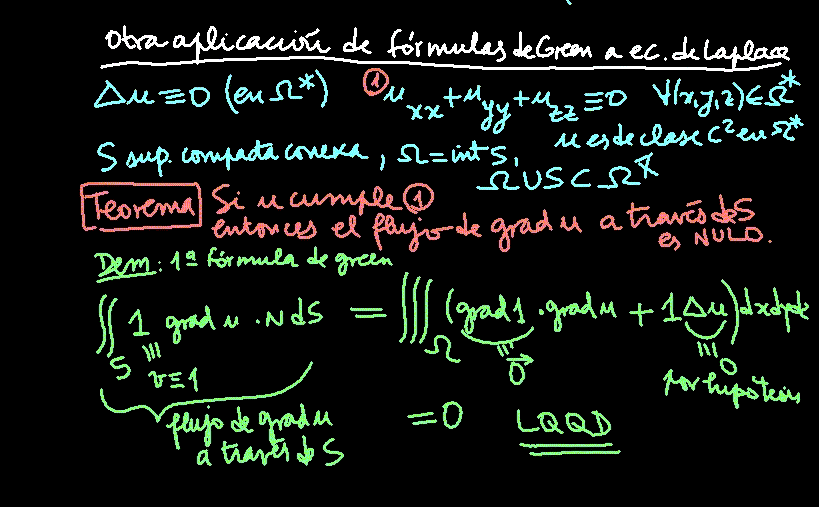 Otra aplicación de fórmulas de Green a ec. de Laplace
Δu ≡ 0 (en Ω*) ① u_xx + u_yy + u_zz ≡ 0 ∀(x,y,z) ∈ Ω*
u es de clase C² en Ω*
S sup. compacta conexa, Ω = int S,
Ω ∪ S ⊂ Ω*
Teorema Si u cumple ①
entonces el flujo de grad u a través de S
es NULO.
Dem: 1ª fórmula de green
∬_S 1 grad u · N dS = ∭_Ω (grad 1 · grad u + 1 Δu) dxdydz
≡ v≡1 ≡ 0⃗ ≡ 0
por hipótesis
flujo de grad u
a través de S
= 0 LQQD